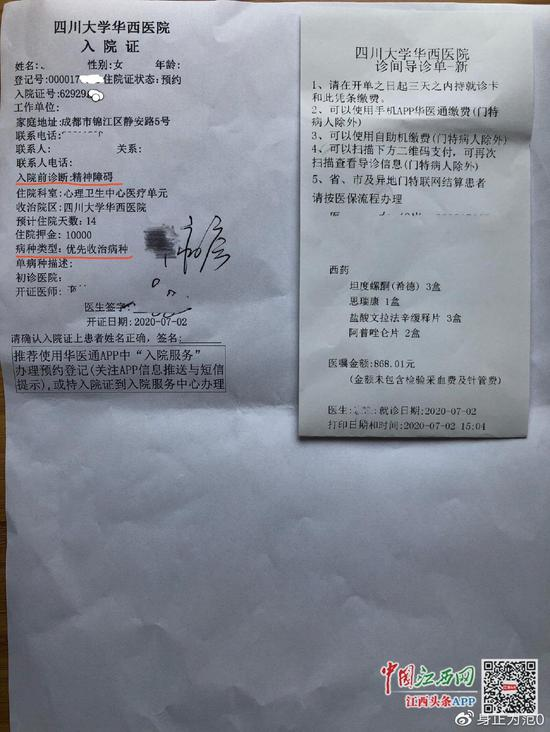 四川大学华西医院
入院证
姓名: 性别:女 年龄:
登记号:000017 住院证状态:预约
入院证号:62929
工作单位:
家庭地址:成都市锦江区静安路5号
联系电话:
联系人: 关系:
联系人电话:
入院前诊断:精神障碍
住院科室:心理卫生中心医疗单元
收治院区:四川大学华西医院
预计住院天数:14
住院押金:10000
病种类型:优先收治病种
单病种描述:
初诊医院:
开证医师:
医生签字:
开证日期:2020-07-02
请确认入院证上患者姓名正确,签名:
推荐使用华医通APP中“入院服务”
办理预约登记(关注APP信息推送与短信
提示),或持入院证到入院服务中心办理
四川大学华西医院
诊间导诊单-新
1、请在开单之日起三天之内持就诊卡
和此凭条缴费。
2、可以使用手机APP华医通缴费(门特
病人除外)
3、可以使用自助机缴费(门特病人除外)
4、可以扫描下方二维码支付,可再次
扫描查看导诊信息(门特病人除外)
5、省、市及异地门特联网结算患者
请按医保流程办理
西药
坦度螺酮(希德) 3盒
思瑞康 1盒
盐酸文拉法辛缓释片 3盒
阿普唑仑片 2盒
医嘱金额:868.01元
(金额未包含检验采血费及针管费)
医生: 就诊日期:2020-07-02
打印日期和时间:2020-07-02 15:04
中国江西网
江西头条APP
身正为范0